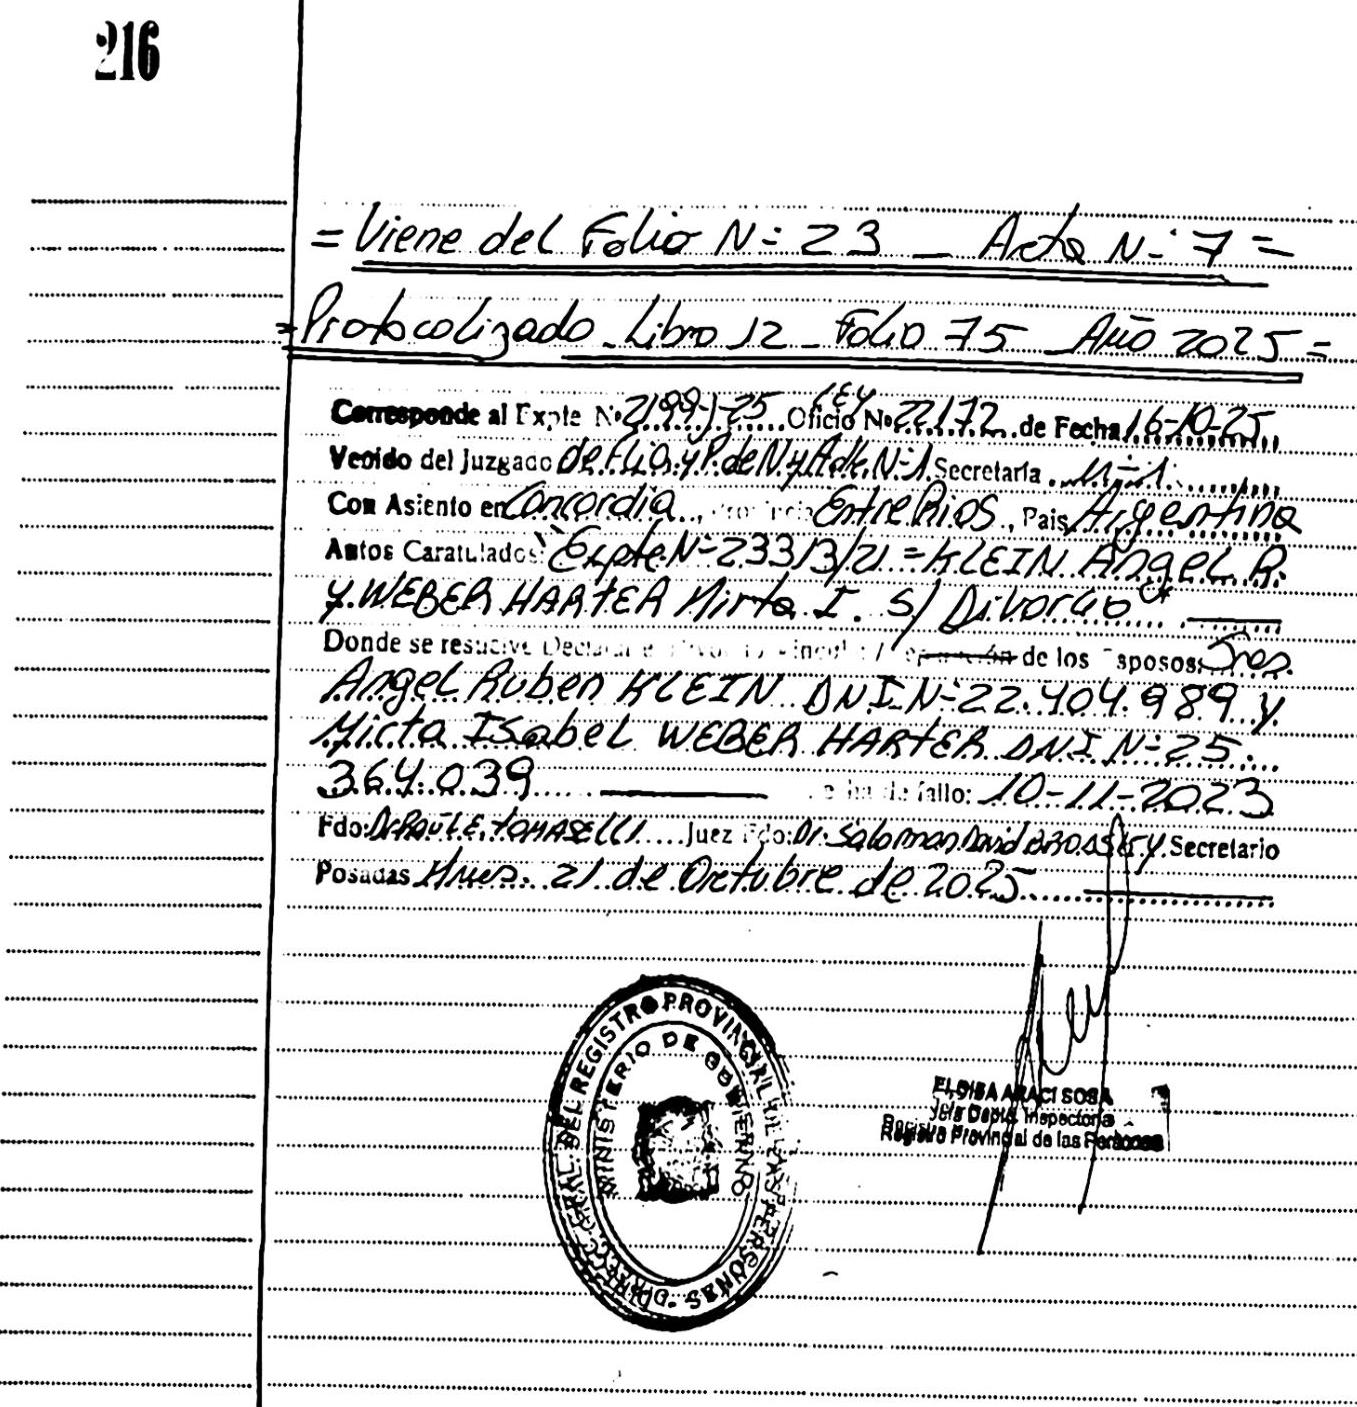 216
= Viene del Folio N= 23 _ Acta N- 7 =
= Protocolizado - Libro 12 - Folio 75 - Año 2025 =
LEY
Corresponde al Expte Nº 2199-J-25 Oficio Nº 22172 de Fecha 16-10-25
Venido del Juzgado de Flia. y P. de N. y Adk. N-1 Secretaría N-1.
Con Asiento en Concordia, Provincia Entre Rios, Pais Argentina
Autos Caratulados: Expte N- 233/3/21 = KLEIN Angel R.
y WEBER HARTER Mirta I. S/ Divorcio "
Donde se resuelve Declarar el Divorcio Vincular / Separación de los Esposos: Sres.
Angel Ruben KLEIN DNI N- 22.404.989 y
Mirta ISabel WEBER HARTER DNI N- 25.
364.039 Fecha de fallo: 10-11-2023
Fdo: Dr. RAÚL E. TOMASELLI Juez Fdo: Dr. Saloman David BRODSKY Secretario
Posadas Mnes. 21 de Octubre de 2025
DIRECC. GRAL. DEL REGISTRO PROVINCIAL DE LAS PERSONAS
MINISTERIO DE GOBIERNO
ELOISA ARACI SOSA
Jefa Depto. Inspectoria
Registro Provincial de las Personas